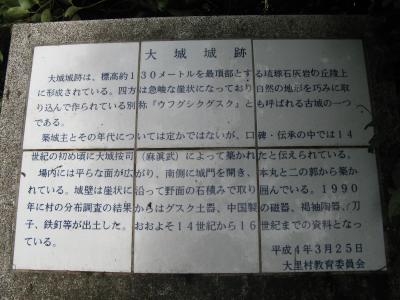 大城城跡
大城城跡は、標高約130メートルを最頂部とする琉球石灰岩の丘陵上
に形成されている。四方は急峻な崖状になっており自然の地形を巧みに取
り込んで作られている別称『ウフグシクグスク』とも呼ばれる古城の一つ
である。
築城主とその年代については定かではないが、口碑・伝承の中では14
世紀の初め頃に大城按司(麻真武)によって築かれたと伝えられている。
場内には平らな面が広がり、南側に城門を開き、本丸と二の郭から築か
れている。城壁は崖状に沿って野面の石積みで取り囲んでいる。1990
年に村の分布調査の結果からはグスク土器、中国製の磁器、褐釉陶器、刀
子、鉄釘等が出土した。おおよそ14世紀から16世紀までの資料となっ
ている。
平成4年3月25日
大里村教育委員会